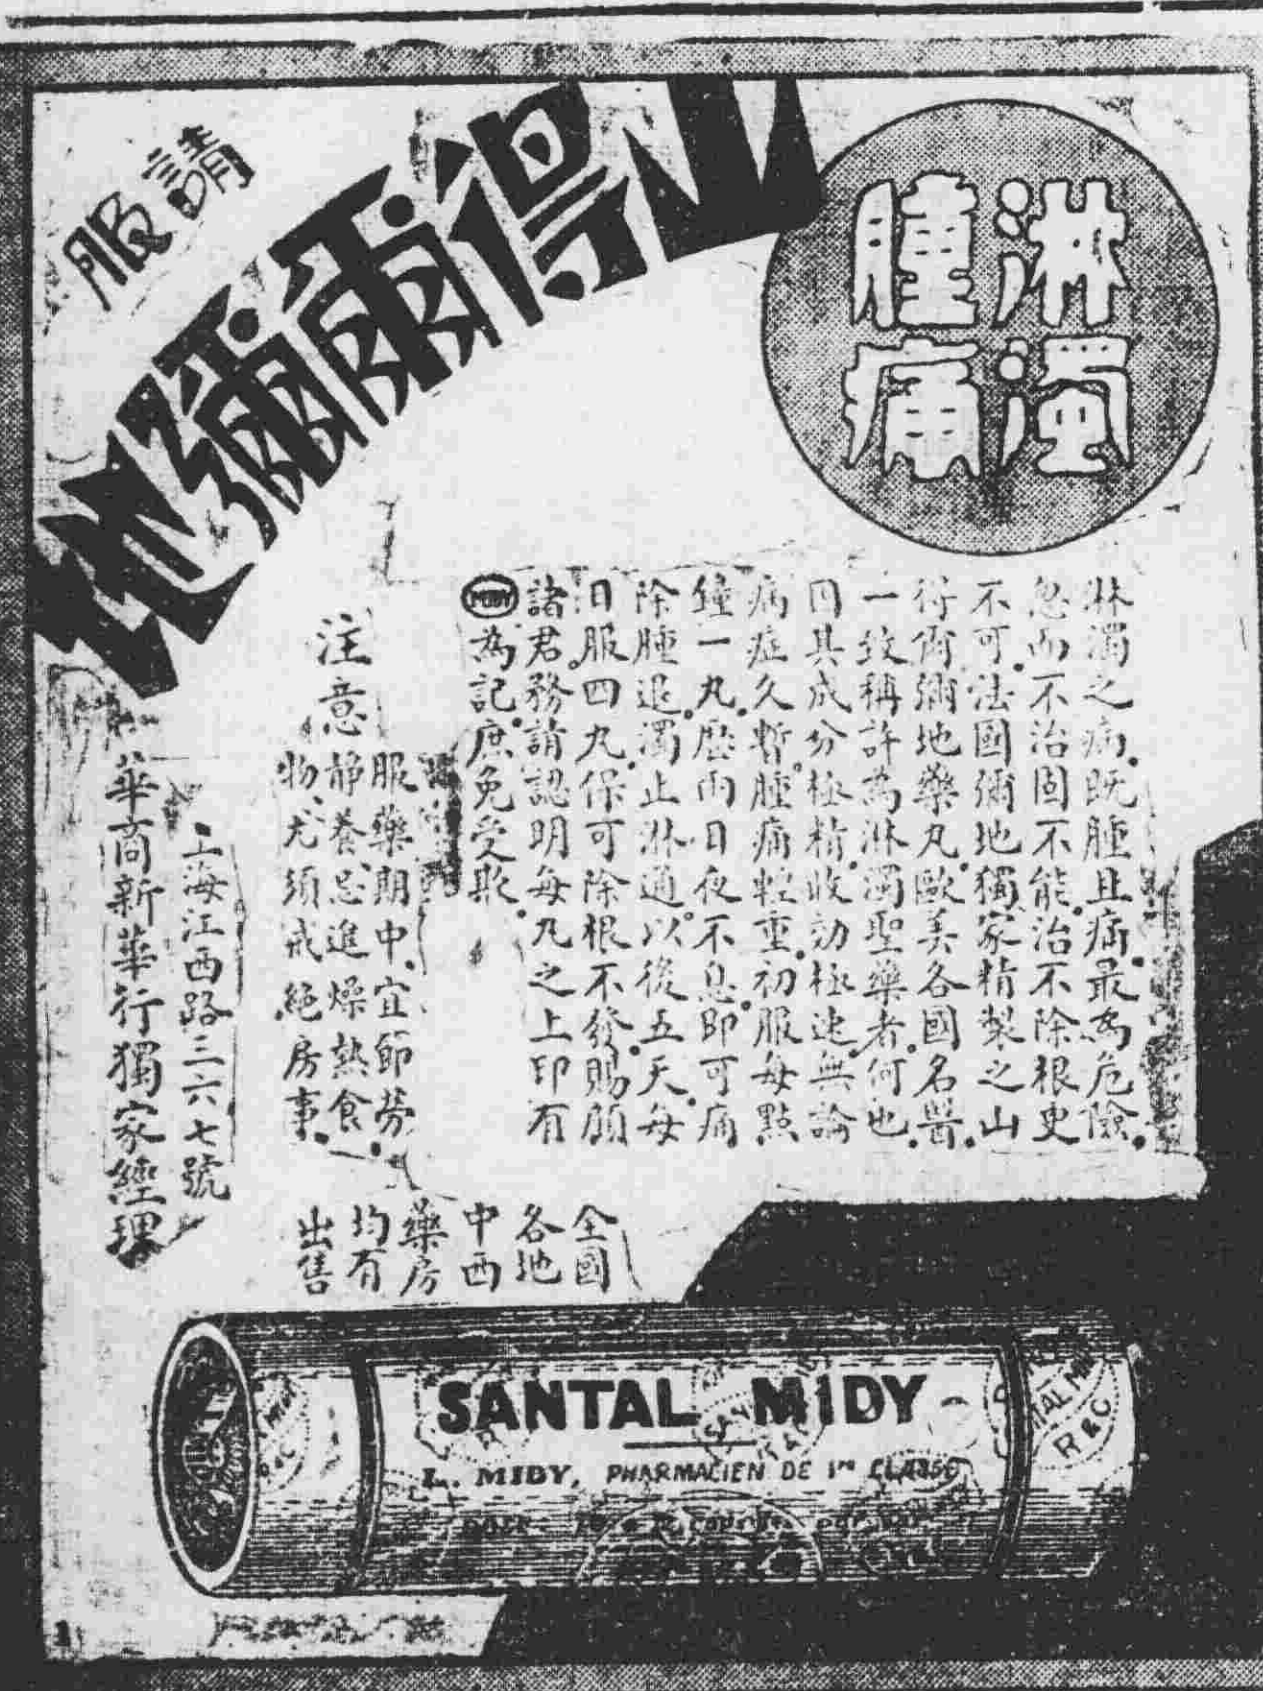 淋濁
腫痛
請服
山得爾彌地
淋濁之病。既腫且痛。最為危險。
忽而不治固不能。治不除根更
不可。法國彌地獨家精製之山
得爾彌地藥丸。歐美各國名醫。
一致稱許為淋濁聖藥者。何也。
因其成分極精。收効極速。無論
病症久暫。腫痛輕重。初服每點
鐘一丸。歷兩日夜不息。即可痛
除腫退。濁止淋通。以後五天。每
日服四丸。保可除根不發。賜顧
諸君。務請認明每丸之上印有
MIDY為記。庶免受欺。
注意
服藥期中。宜節勞
靜養。忌進燥熱食
物。尤須戒絕房事。
上海江西路三六七號
華商新華行獨家經理
全國
各地
中西
藥房
均有
出售
SANTAL MIDY
L. MIDY, PHARMACIEN DE 1re CLASSE